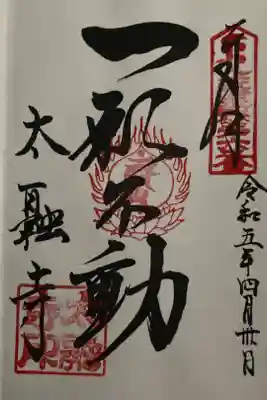 奉拝
令和五年四月卅日
一願不動
太融寺